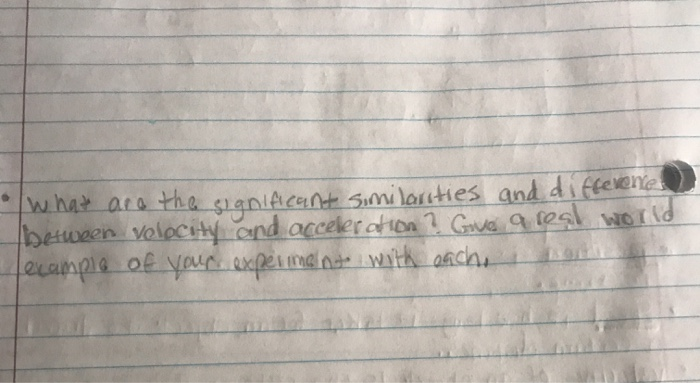 • What are the significant similarities and differences
between velocity and acceleration? Give a real world
example of your experiment with each.